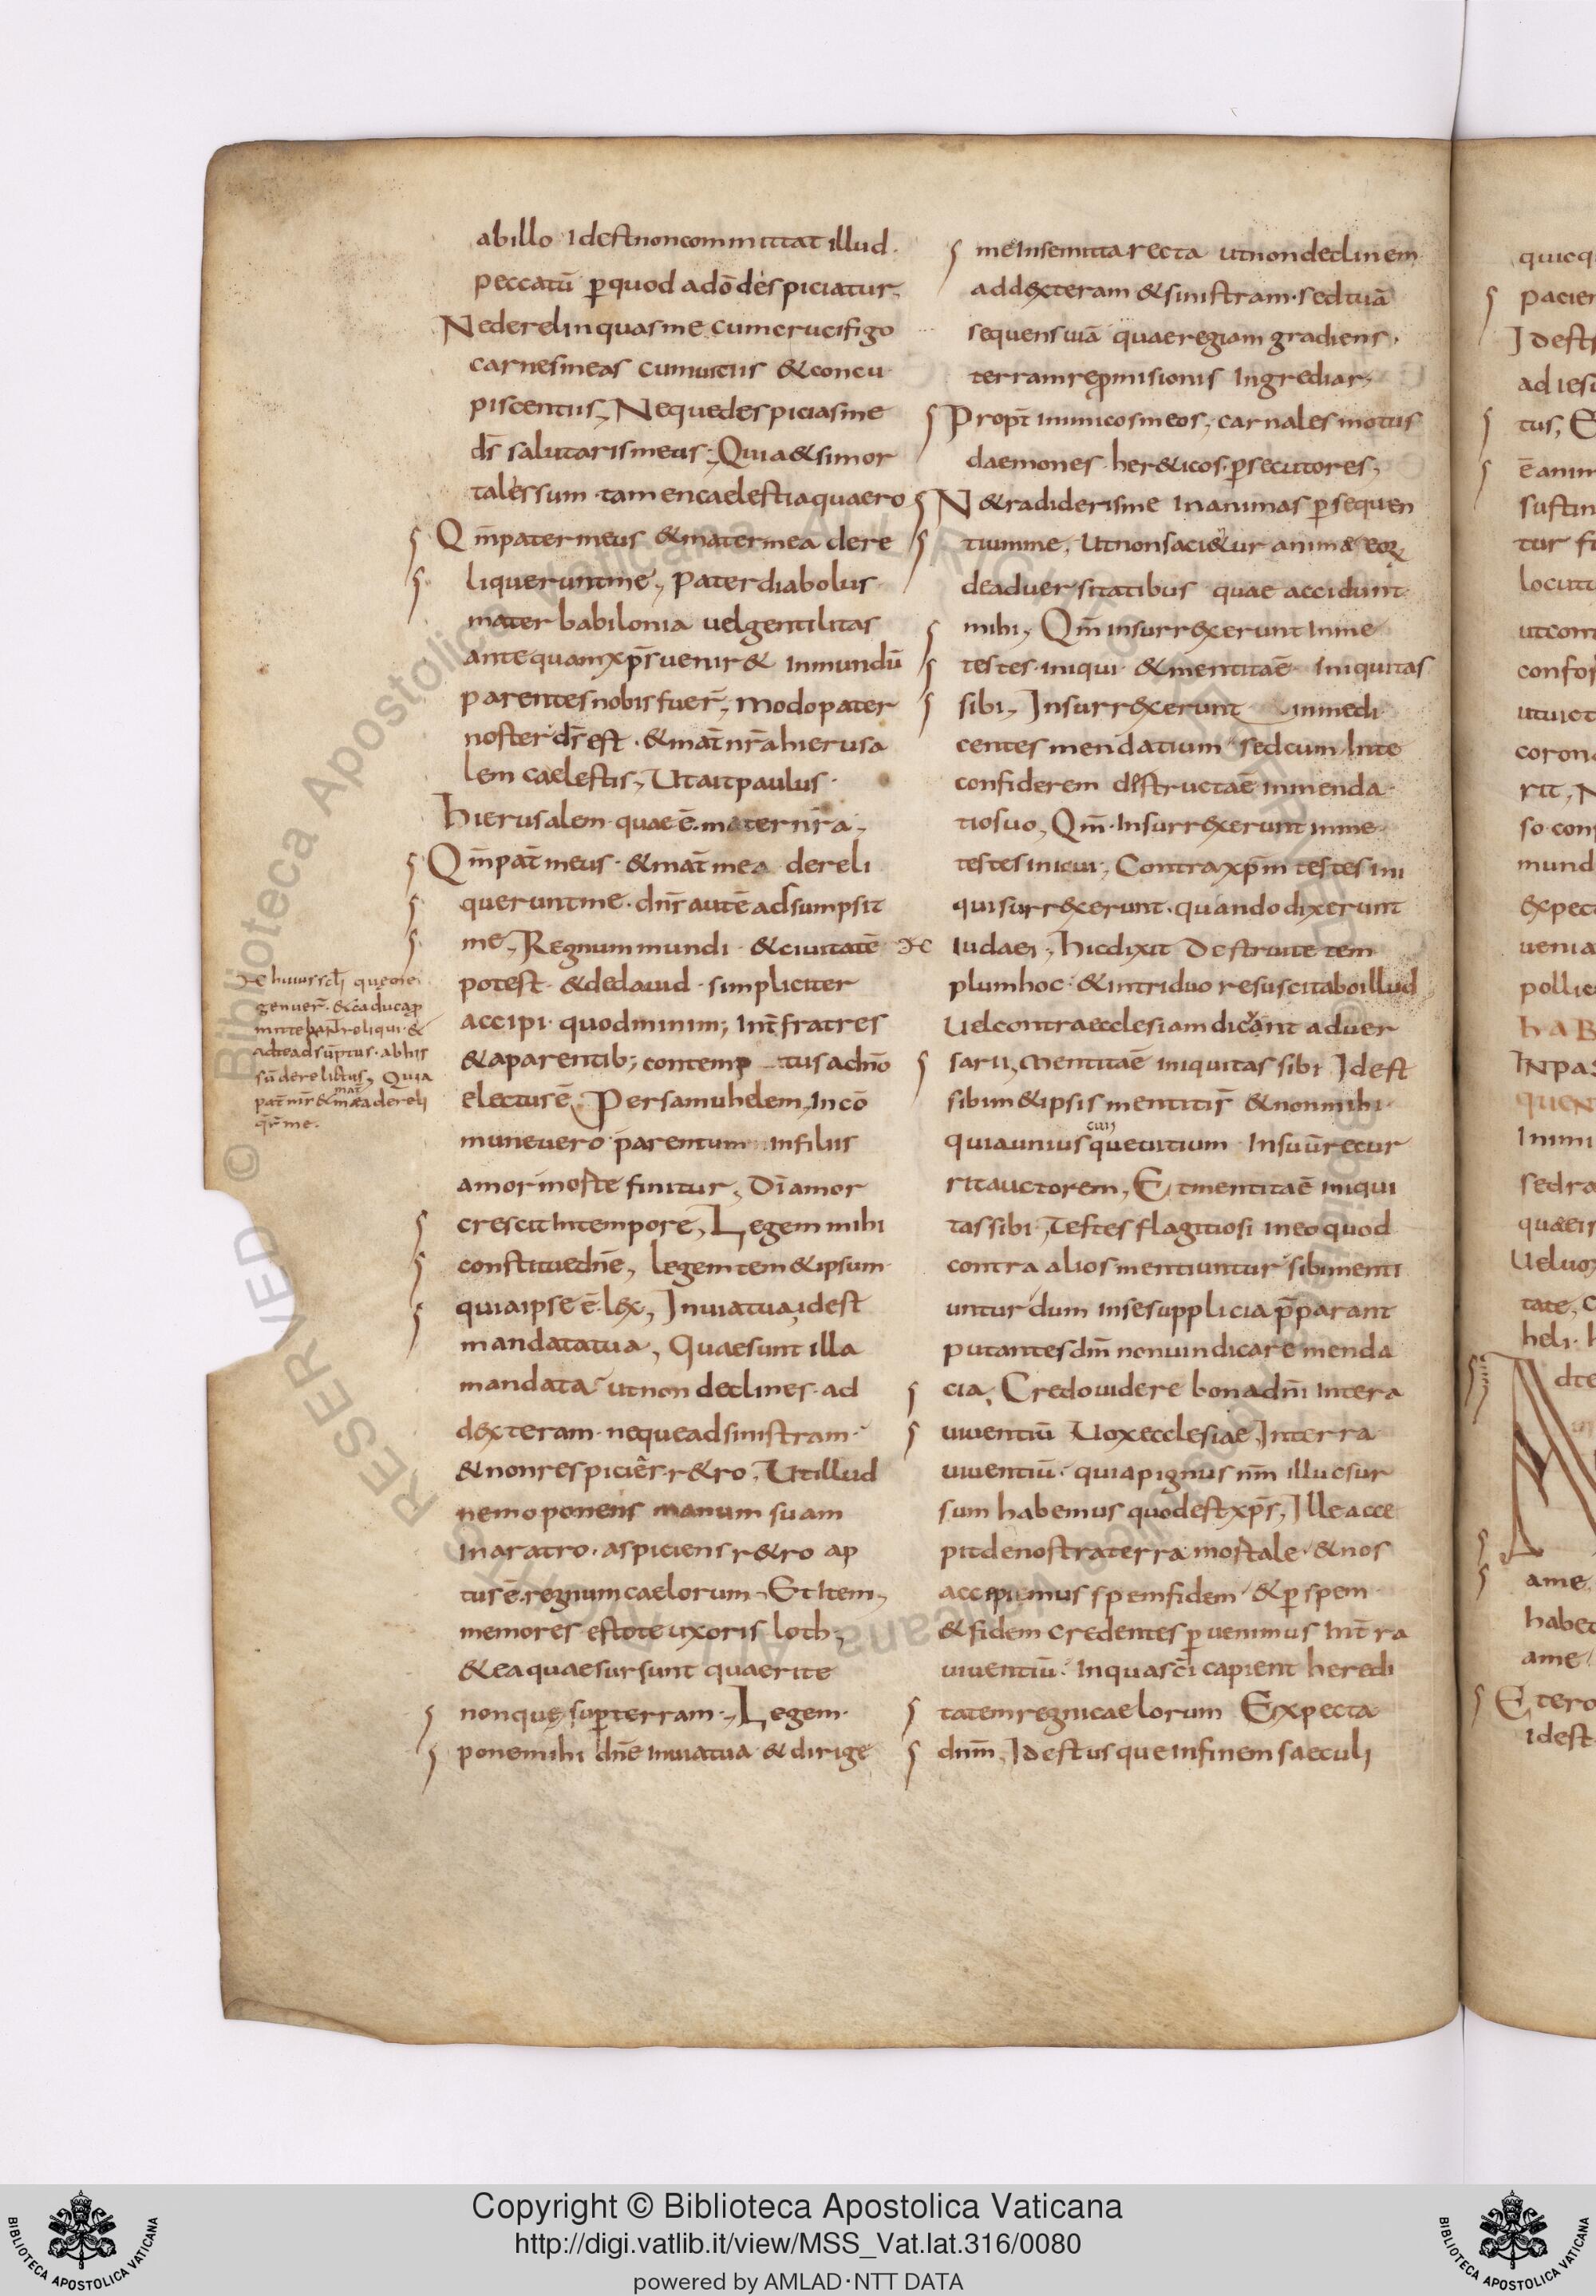 ab illo idest non committat illud
peccatū ꝑ quod a dō despiciatur,
Ne derelinquas me cum crucifigo
carnes meas cum uitiis & concu
piscentiis, Neque despicias me
dš salutaris meus; Quia & si mor
tales sum tamen caelestia quaero
Qm̄ pater meus & mater mea dere
liquerunt me, pater diabolus
mater babilonia uel gentilitas
ante quam xp̄s uenir& in mundū
parentes nobis fuer̄, modo pater
noster ds̄ est · & mat̄ nr̄a hierusa
lem caelestis, Ut ait paulus ·
hierusalem quae ē mater nr̄a,
Qm̄ pat̄ meus · & mat̄ mea dereli
querunt me · dn̄s autē adsumpsit
me, Regnum mundi & ciuitatē
potest & de dauid simpliciter
accipi quod minim; int̄ fratres
& a parentib; contemp tus a dn̄o
electus ē, Per samuhelem, In cō
mune uero parentum in filiis
amor in oste finitur, Dī amor
crescit in tempore, Legem mihi
constitue dn̄e, legem tem&ipsum
quia ipse ē l&x, In uia tua, idest
mandata tua, Quae sunt illa
mandata ut non declines · ad
d&xteram · neque ad sinistram ·
& non respicies r&ro, Ut illud
nemo ponens manum suam
in aratro · aspiciens r&ro ap
tus ē regnum caelorum, Et item,
memores estote uxoris loth,
& ea quae sursunt quaerite
non que suꝑ terram, Legem
pone mihi dn̄e in uia tua & dirige
De huius scl̄i
genuer̄ · & educa
reliqui · &
a te adsūptus · ab his
sū derelictus, Quia
pat̄ mr̄ & mat mea dereli
qr̄ me ·
me in semita recta ut non declinem
ad d&xteram & sinistram · sed tuā
sequens uiā quae regiam gradiens,
terram repmisionis ingrediar,
Propt̄ inimicos meos, carnales motus
daemones her&icos ꝑsecutores,
N& radideris me in animas ꝑsequen
tium me, Ut non saci&ur anima eoꝝ
de aduersitatibus quae accidunt
mihi, Qm̄ insurr&xerunt in me
testes iniqui & mentita ē iniquitas
sibi, Insurr&xerunt in me di
centes mendatium sed cum in te
confiderem destructa ē in menda
tio suo, Qm̄ insurr&xerunt in me
testes iniqui, Contra xp̄m testes ini
qui surr&xerunt · quando dixerunt
iudaei, hic dixit Destruite tem
plum hoc · & in triduo resuscitabo illud
Uel contra ecclesiam dicant aduer
sarii, mentita ē iniquitas sibi Idest
sibim&ipsis mentitī & non mihi
cuis
quia unius que uitium in suū recur
rit auctorem, Et mentita ē iniqui
tas sibi, Testes flagitiosi in eo quod
contra alios mentiuntur sibi menti
untur dum in se supplicia p̄parant
putantes dm̄ non uindicare menda
cia, Credo uidere bona dn̄i in tera
uiuentiū Uox ecclesiae, In terra
uiuentiū · quia pignus nm̄ illuc sur
sum habemus quod est xp̄s, Ille acce
pit de nostra terra mortale · & nos
accipimus spem fidem & ꝑ spem
& fidem credentes ꝑuenimus int̄ra
uiuentiū · In qua scī capient heredi
tatem regni caelorum Expecta
dnm̄, Idest usque in finem saeculi
quicq
pacien
Idest
ad iesu
tus, E
ē anim
sustin
tur
locuti
ut con
confor
ut uict
corona
rit, N
so con
mund
&xpec
uenia
pollic
hab
IN pas
quen
Inimi
sed ra
quaeir
Uel uox
tate, c
heli ·
dte
ame
habet
ame
Et ero
idest
© Biblioteca Apostolica Vaticana
Copyright © Biblioteca Apostolica Vaticana
http://digi.vatlib.it/view/MSS_Vat.lat.316/0080
powered by AMLAD·NTT DATA
BIBLIOTECA APOSTOLICA VATICANA
BIBLIOTECA APOSTOLICA VATICANA